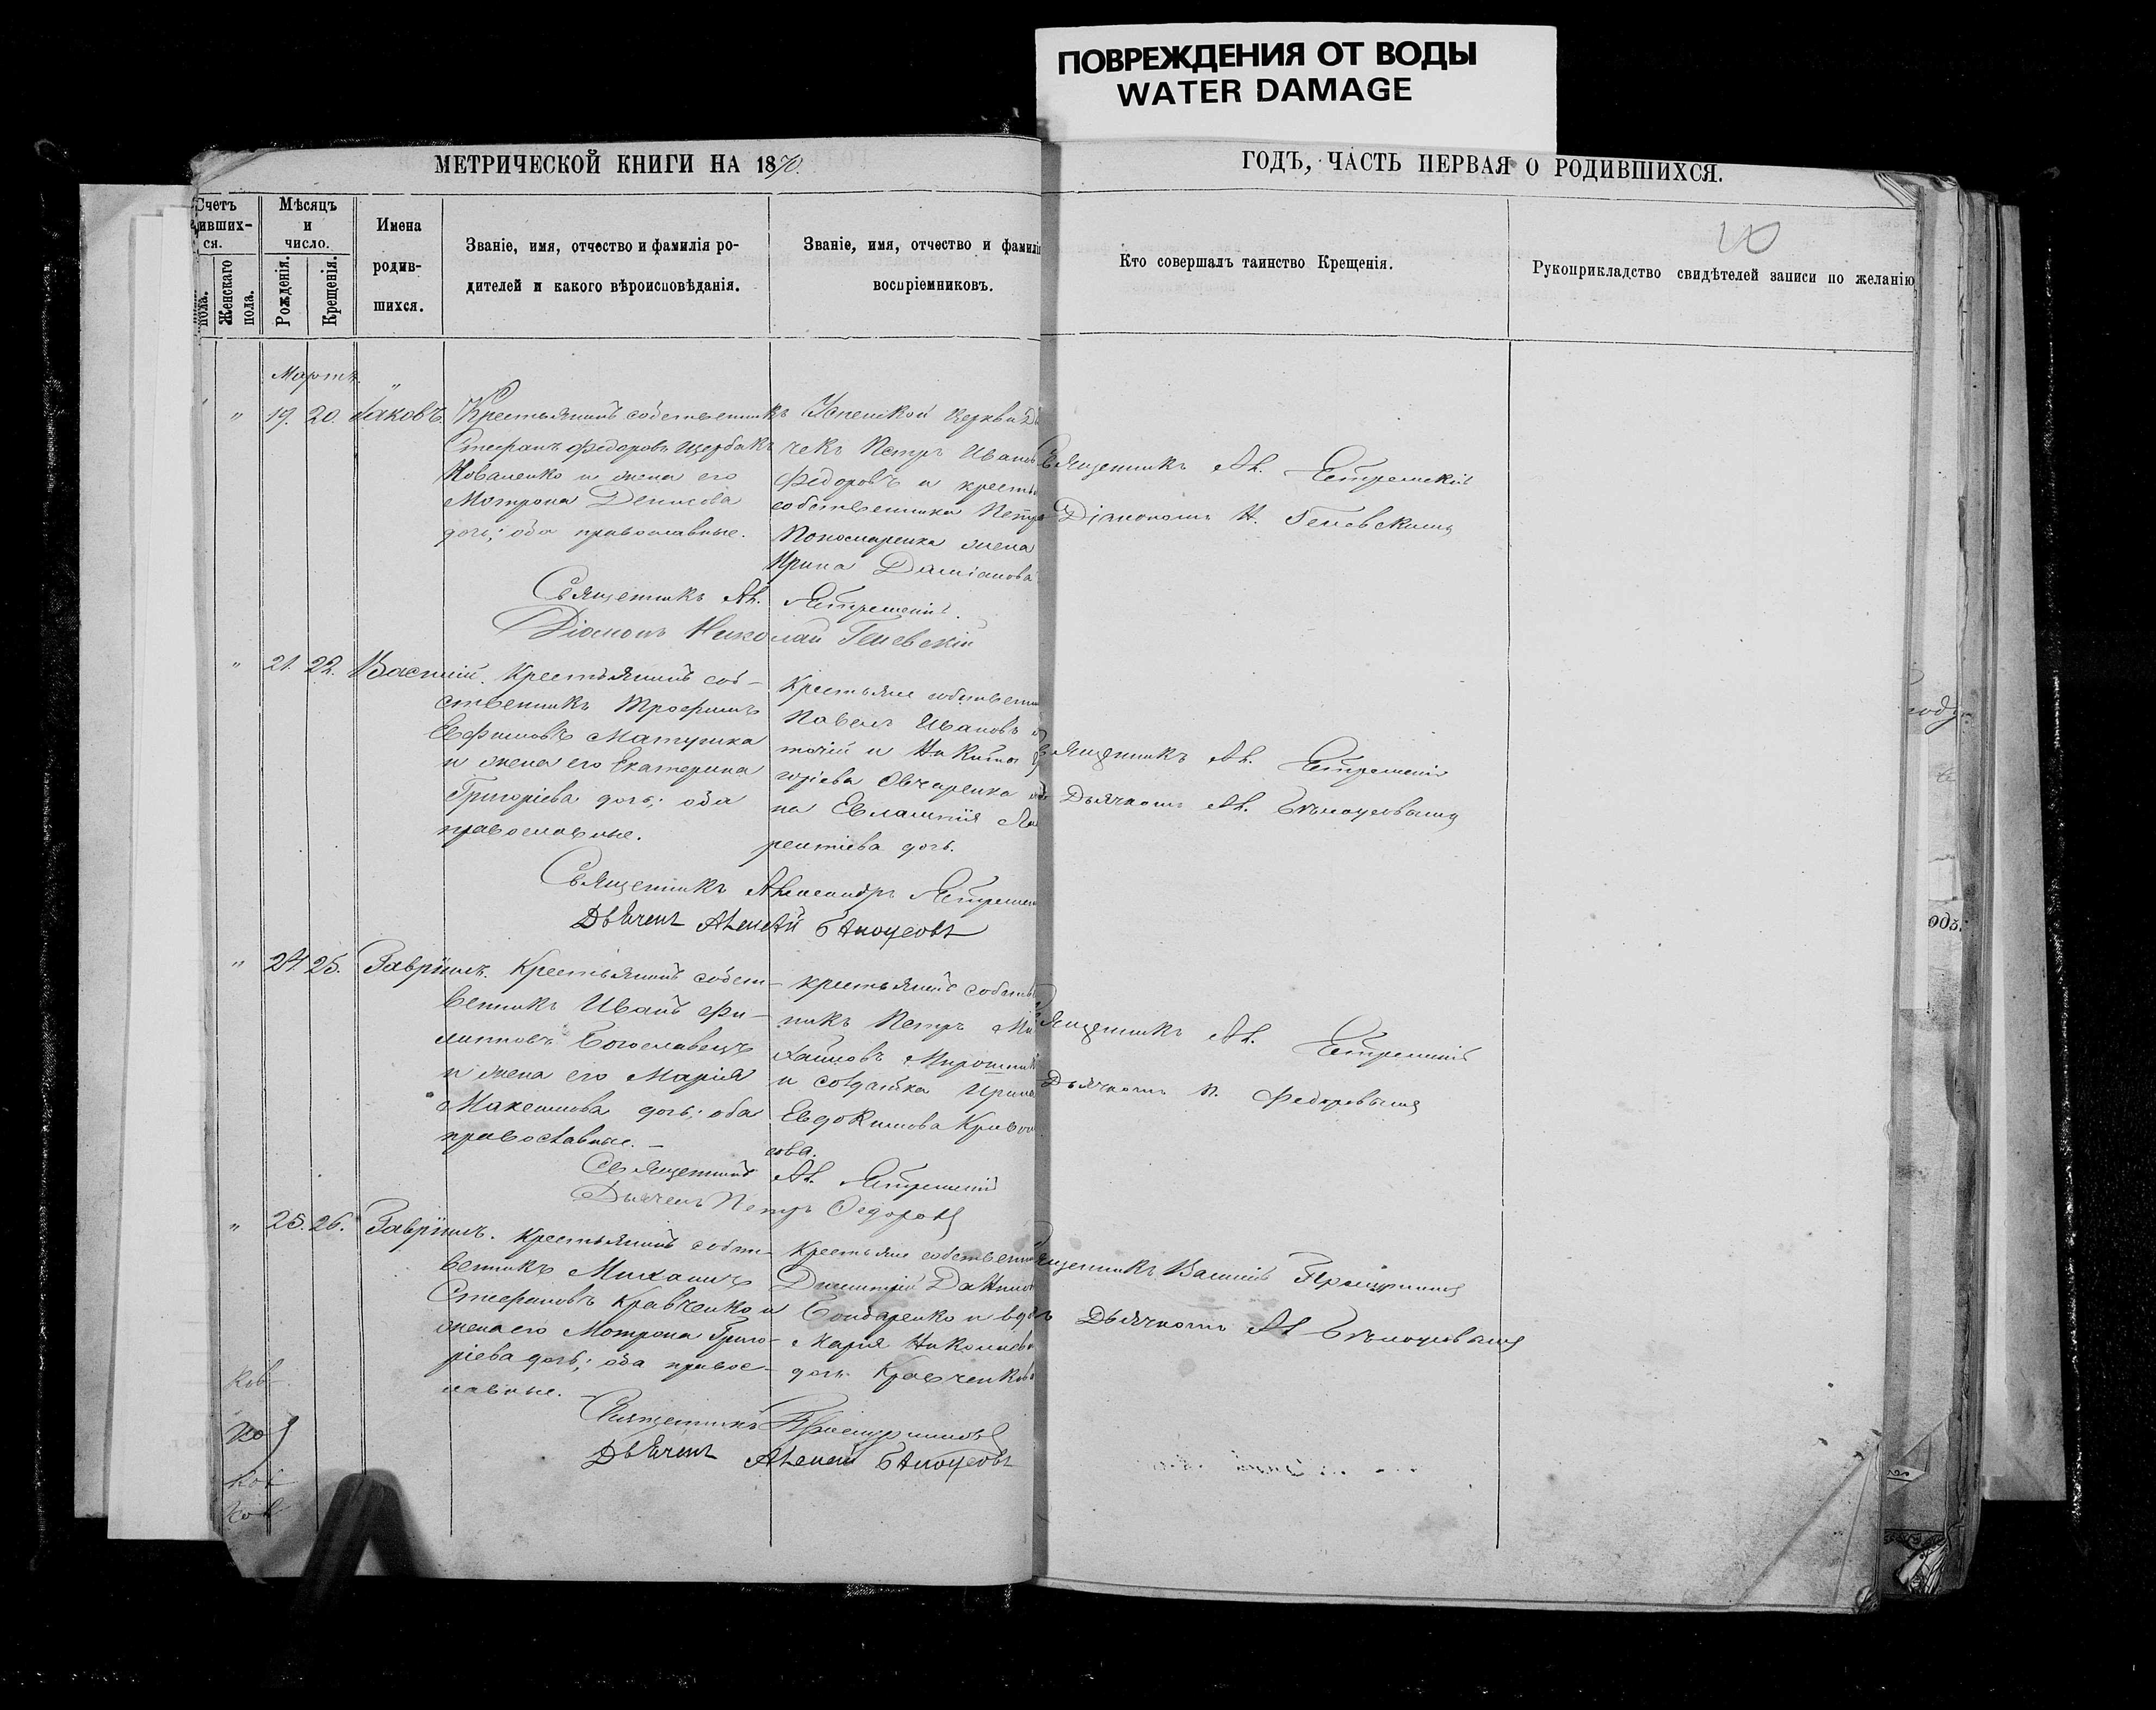 ПОВРЕЖДЕНИЯ ОТ ВОДЫ
WATER DAMAGE
МЕТРИЧЕСКОЙ КНИГИ НА 1870.
ГОДЪ, ЧАСТЬ ПЕРВАЯ О РОДИВШИХСЯ.
Счетъ
ивших-
ся.
пола.
Женскаго
пола.
Мѣсяцъ
и
число.
Рожденія.
Крещенія.
Имена
родив-
шихся.
Званіе, имя, отчество и фамилія ро-
дителей и какого вѣроисповѣданія.
Званіе, имя, отчество и фамилі
воспріемниковъ.
Кто совершалъ таинство Крещенія.
Рукоприкладство свидѣтелей записи по желанію
Мартъ.
" 19. 20. Іаковъ.
Крестьянинъ собственникъ
Стефанъ Федоровъ Щербакъ
Коваленко и жена его
Мотрона Денисова
дочь; оба православные.
Успенской церкви
чекъ Петръ Иванов
Федоровъ и крестья
собственника Петра
Пономаренка жена
Ирина Даміанова
Священникъ Ал.
Діакономъ Н.
Священникъ Ал.
Діаконъ Николай
" 21. 22. Василій.
Крестьянинъ соб-
ственникъ Трофимъ
Евфимовъ Матушка
и жена его Екатерина
Григоріева дочь; оба
православные.
Крестьяне собственни
Павелъ Ивановъ
и Никита
горіева Овчаренка
на Евлампія
рентіева дочь.
Священникъ Ал.
Дьячкомъ Ал. Бѣлоусовымъ
Священникъ Александръ
Дьячекъ Алексѣй Бѣлоусовъ
" 24. 25. Гавріилъ.
Крестьянинъ собст-
венникъ Иванъ Фи-
липповъ Богославецъ
и жена его Марія
Максимова дочь; оба
православные. —
крестьянинъ собстве
никъ Петръ Ми
хаиловъ Мирошник
и солдатка Ирина
Евдокимова
сова.
Священникъ Ал.
Дьячкомъ П. Федоровымъ
Священникъ Ал.
Дьячекъ Петръ Федоровъ
" 25. 26. Гавріилъ.
Крестьянинъ собст-
венникъ Михаилъ
Стефановъ Кравченко и
жена его Мотрона Григо-
ріева дочь; оба правос-
лавные. —
Крестьяне собственни
Димитрій Данило
Бондаренко и вдова
Марія Николаева
дочь Кравченкова
Священникъ Василій
Дьячкомъ Ал. Бѣлоусовымъ
Священникъ
Дьячекъ Алексѣй Бѣлоусовъ